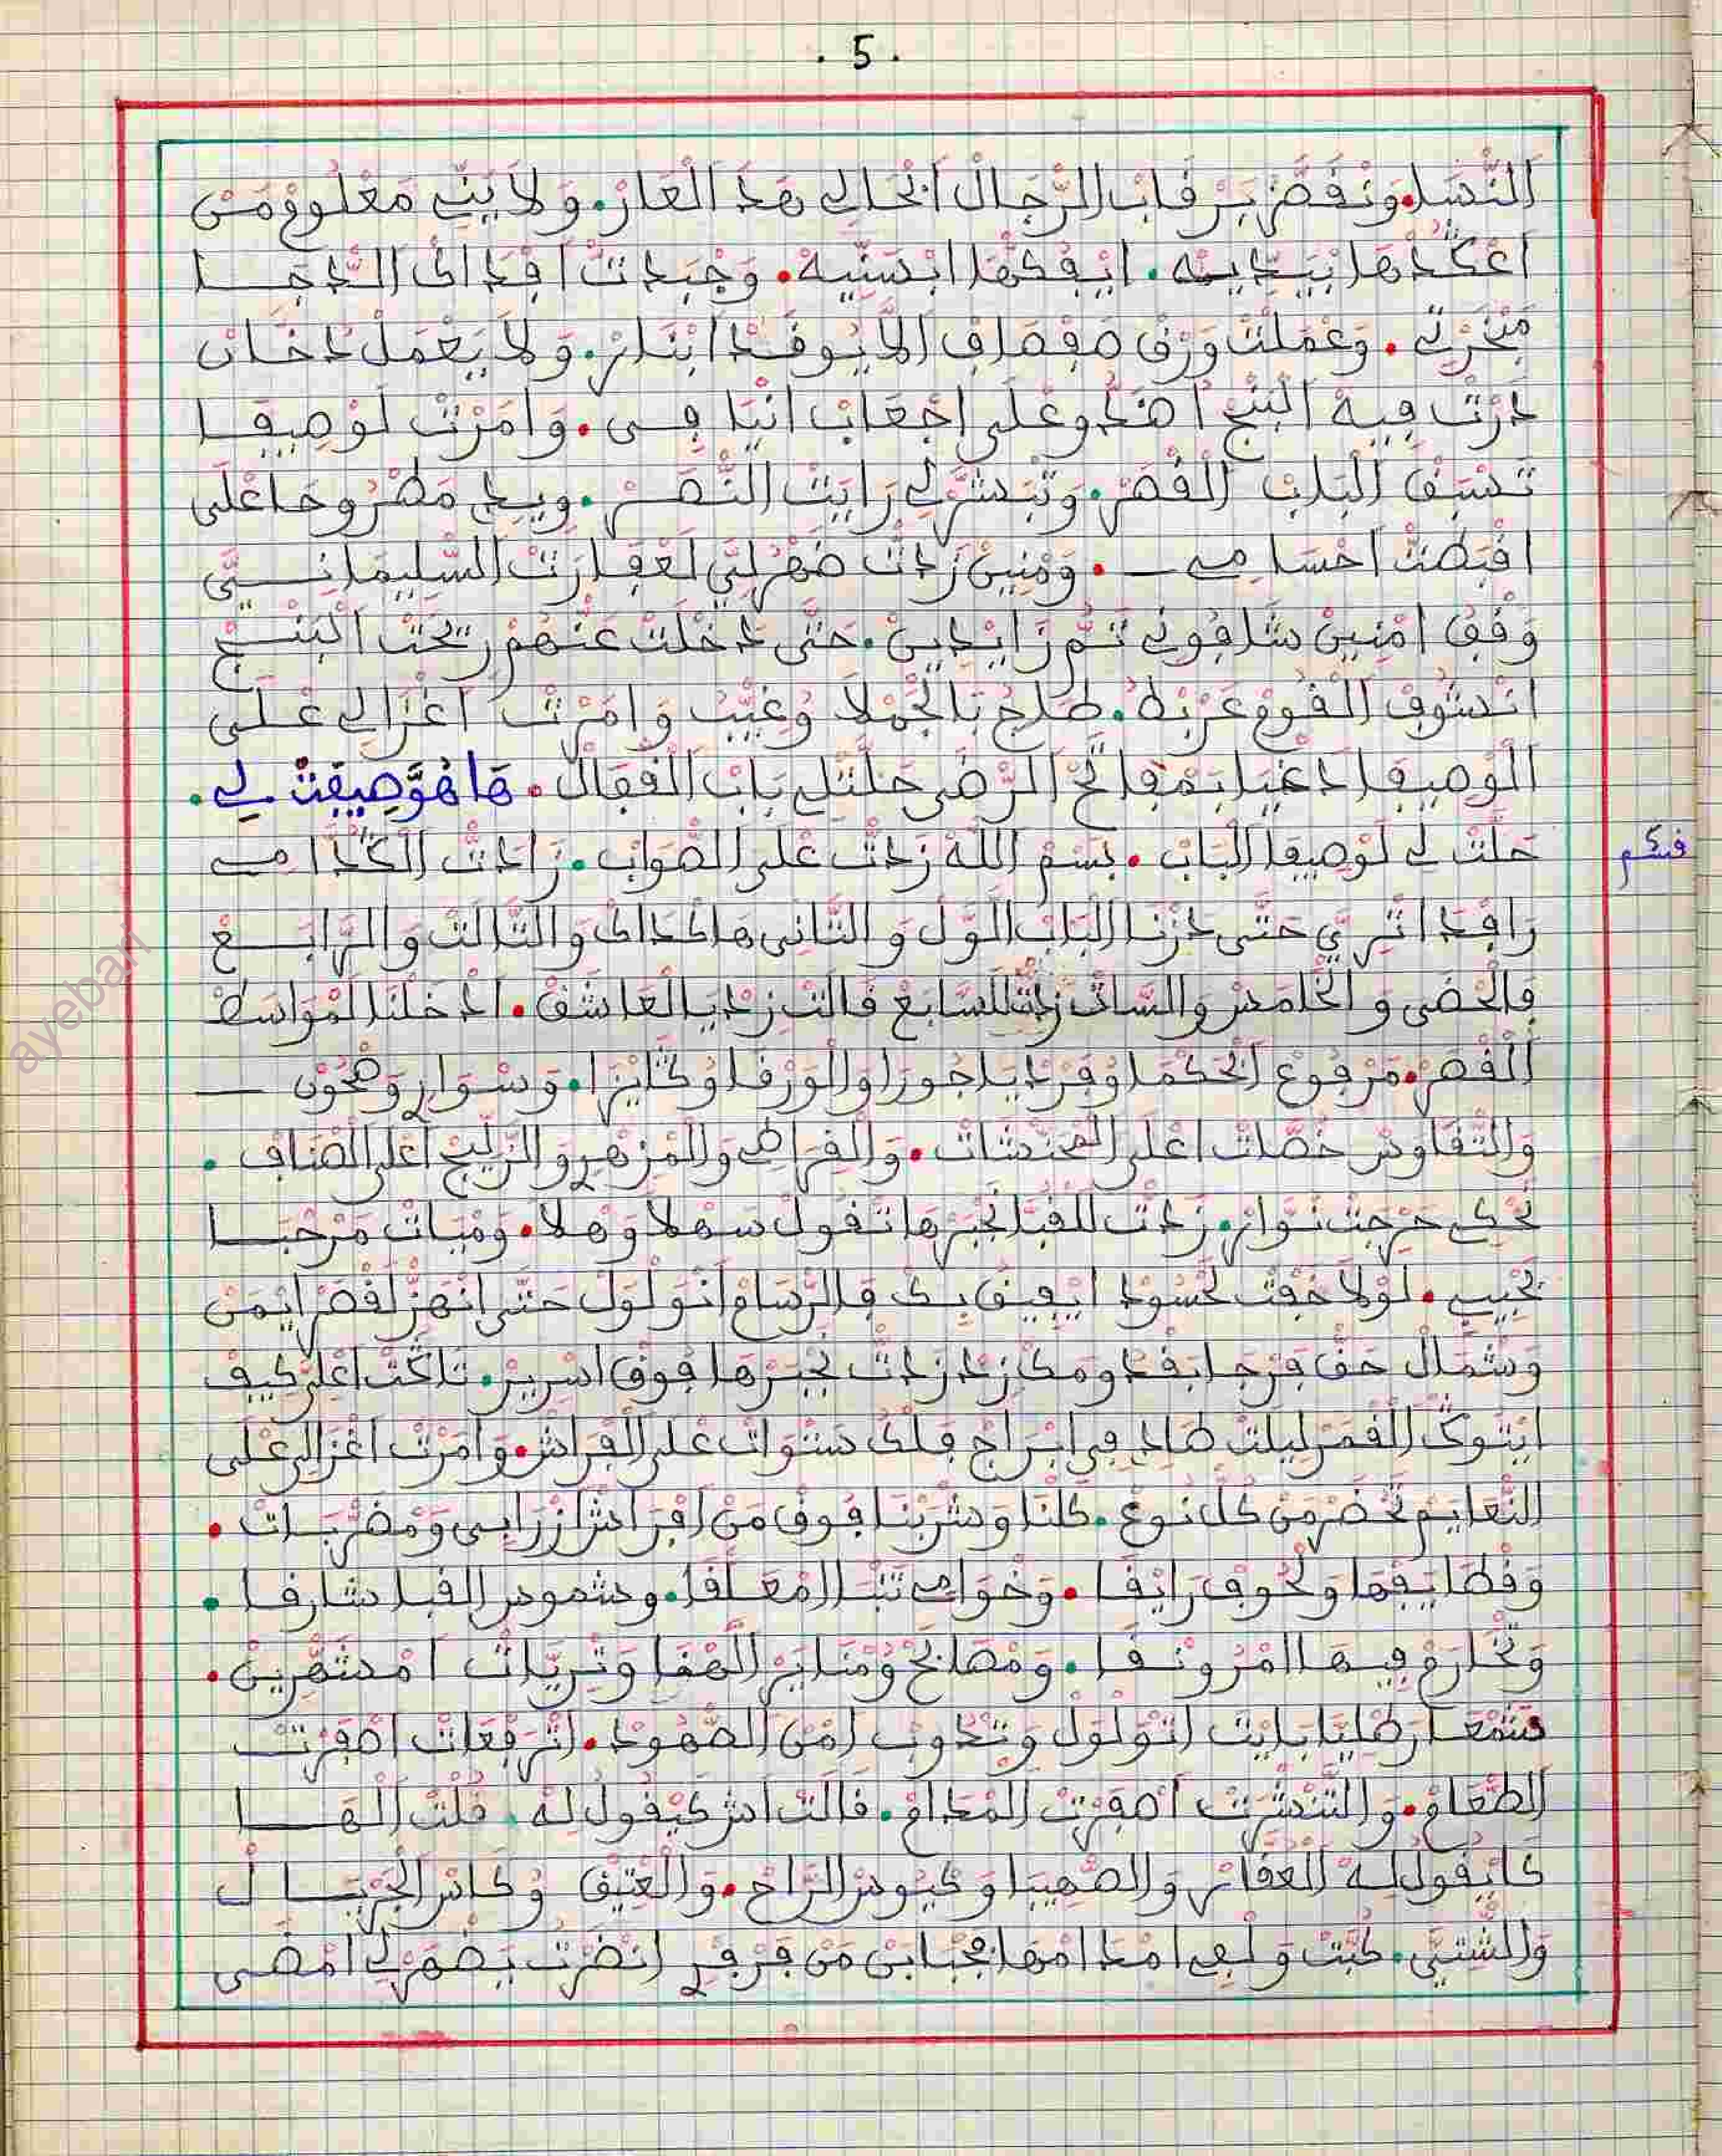 . 5 .
النسا. ونفض برقاب الرجال انحالي هذ العار. ولا يني معلوم من
اعكدها بيديه. ايفكها ابسنيه. وجبدت اقداك الدجا
مبخرتي. وعملت ورق صفصاف الا يوقد ابنار. ولا يعمل دخان
درت فيه البنج اهند وعلى اجعاب انيا في. وامرت لوصيفا
تسبق الباب القصر. وتبشر لي رايت النصر. ويدي مطروحا على
اقبطت احسامي. ومنين زدت ضهر لي لعفارت السليماني
وقف امنين شافوني تم زايدين. حتى دخلت عنهم ريحت البنج
انشوف القوم عربط. طاح بالجملا وغيب وامرت اغزالي على
الوصيفا دغيا بمفاتح الرضى حلتلي باب القفال. ها هو وصيفت لي.
حلت لي لوصيفا الباب. بسم الله زدت على الصواب. زادت اكدامي
رافد اثري حتى درنا الباب الول والثاني هاكداك والثالث والرابع
فالحضى والخامس والسات زدت للسابع قالت زد يا العاشق. ادخلنا لمواسط
القصر. مرفوع الحكما وفريد ياجورا والورقا وكتايزا. وسواري وصحون
والتقاوس خصات اعلى المحنشات. والفراطي والمزهري والزليج اعلى الصناف.
تحكي خرجت نوار. زدت للقبا نجبرها تقول سهلا وهلا. وميات مرحبا
بحبيبي. لولا خفت لحسود ايفيق بك فالرسام انولول حتى انهز لقصر ايمن
وشمال حق فرجا بقدومك زد زدت نجبرها فوق اسرير. تاكت اعلى كيف
ايتوك القمر ليلت هاد في ابراج فلك ستوات على الفراش. وامرت اغزالي على
النعايم تحضر من كل نوع. كلنا وشربنا فوق من افراش ازرابي ومضربات.
وقطايفها ولحوف رايقا. وخوامي تنبا المعلقا. وشموس القبا شارقا.
وتخارم فيها امرونقا. ومصابح ومناير الهقا وتريات امشهرين.
شمعا رطليا بايت اتولول وتدوب امن الصهود. اترفعات اصفرت
الطعام. والتنشرت اصفرت المدام. قالت اش كيقول له. قلت الها
كايقول له العقار والصهيبا وكيوس الراح. والعتيق وكاس الجريال
والشتيي. كبت ولعي امدامها بجبابن من فرفري انضرت يضهر لي امضى
فيكم
ayebari